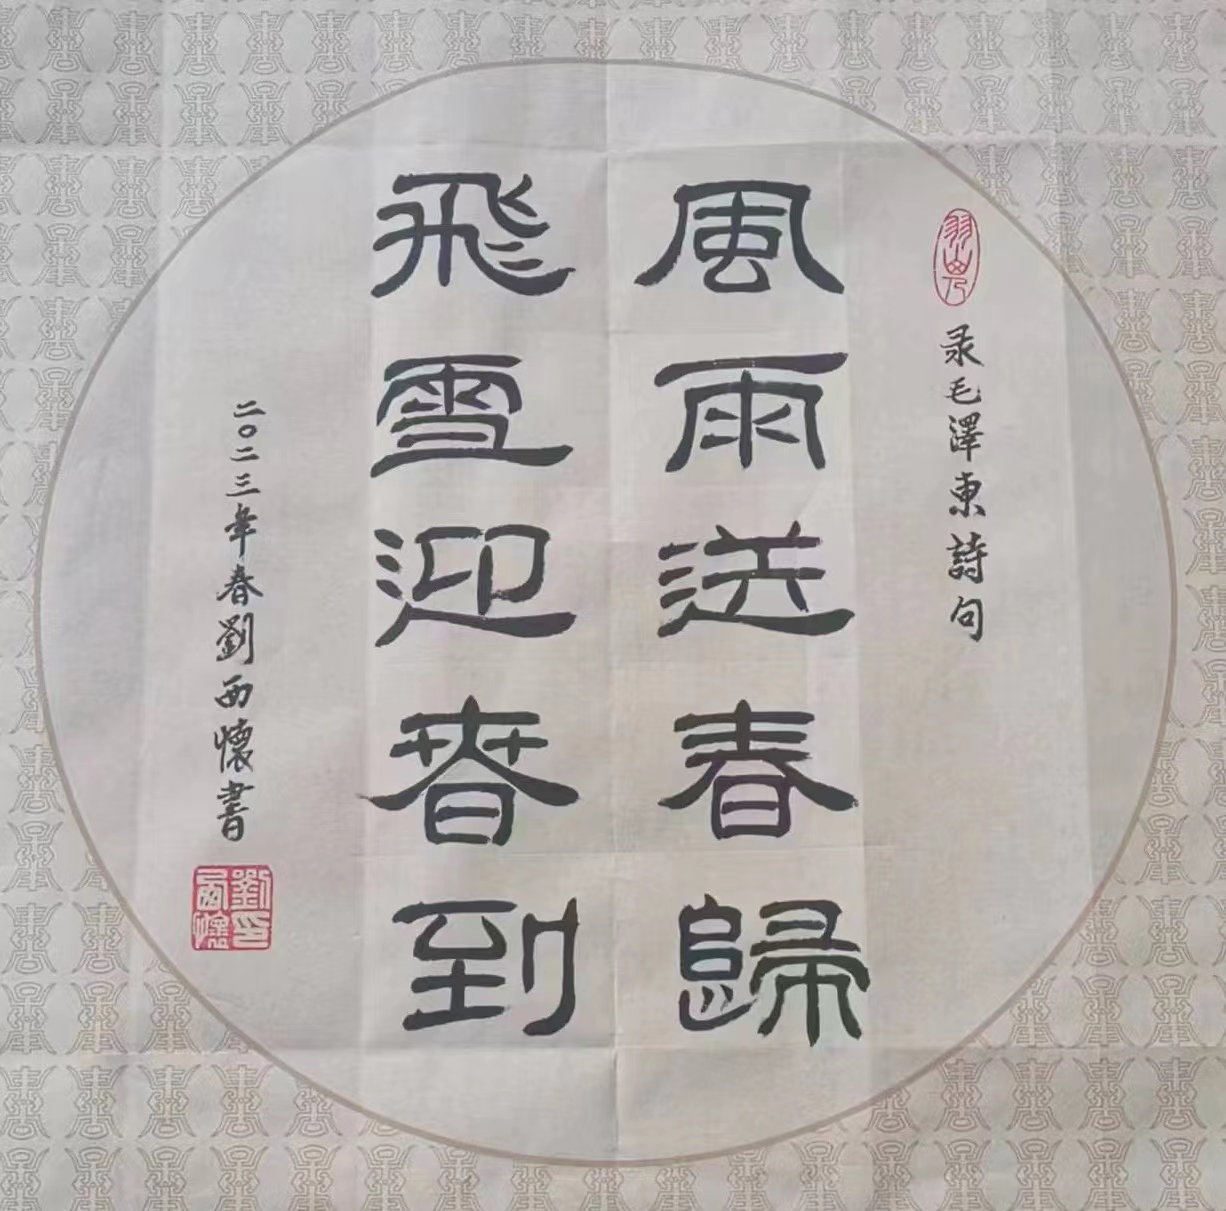 录毛澤東詩句
風雨送春歸
飛雪迎春到
二〇二三年春劉西懷書
劉西懷印